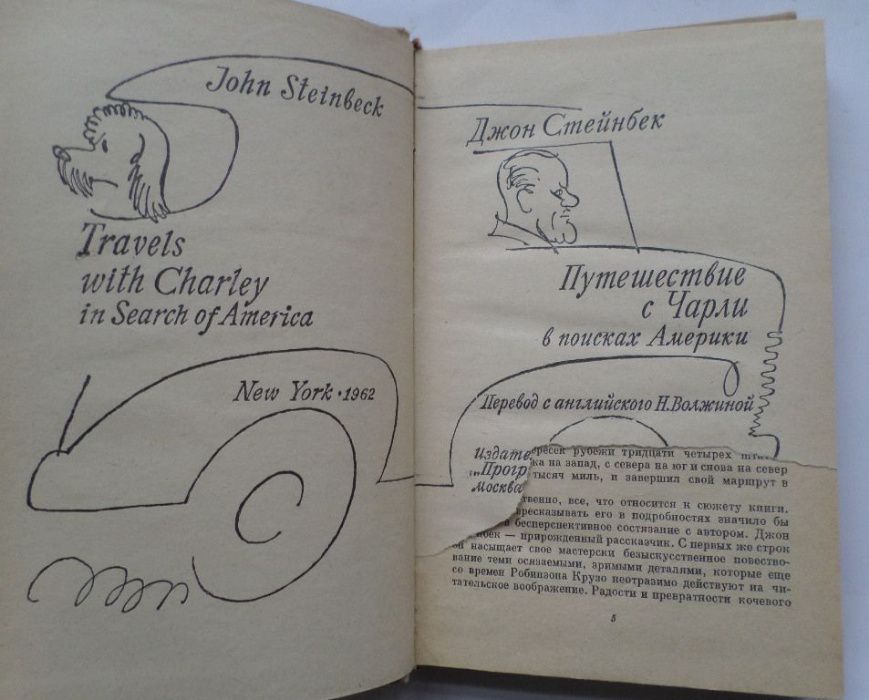 John Steinbeck
Travels
with Charley
in Search of America
New York · 1962
Джон Стейнбек
Путешествие
с Чарли
в поисках Америки
Перевод с английского Н. Волжиной
Издате
„Прогр
москва
ересек рубежи тридцати четырех
ка на запад, с севера на юг и снова на север
тысяч миль, и завершил свой маршрут в
ственно, все, что относится к сюжету книги.
ресказывать его в подробностях значило бы
в бесперспективное состязание с автором. Джон
бек — прирожденный рассказчик. С первых же строк
он насыщает свое мастерски безыскусственное повество-
вание теми осязаемыми, зримыми деталями, которые еще
со времен Робинзона Крузо неотразимо действуют на чи-
тательское воображение. Радости и превратности кочевого
5